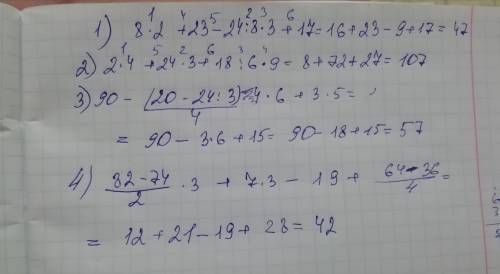 1) 8·2 + 23 - 24:8·3 + 17 = 16 + 23 - 9 + 17 = 47
2) 2·4 + 24·3 + 18:6·9 = 8 + 72 + 27 = 107
3) 90 - (20 - 24:3):4·6 + 3·5 =
4
= 90 - 3·6 + 15 = 90 - 18 + 15 = 57
4) (82 - 74)/2 ·3 + 7·3 - 19 + (64 - 36)/4 =
= 12 + 21 - 19 + 28 = 42